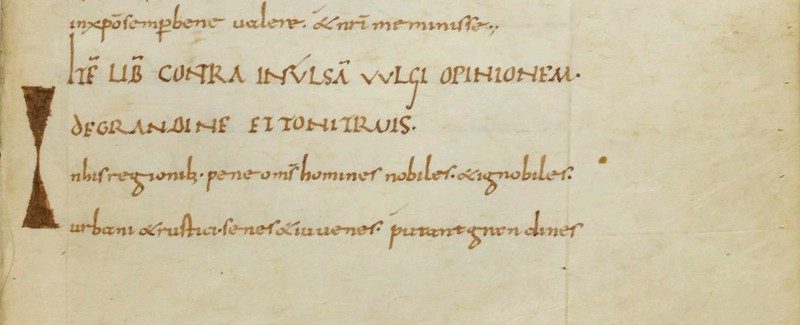 inxpō semper bene ualere. & nr̄i meminisse.,
hēc LIB̄ CONTRA INSVLSĀ VVLGI OPINIONEM.
DE GRANDINE ET TONITRVIS.
In his regionib; pene om̄s homines nobiles. & ignobiles.
urbani & rustici. senes & iuuenes. putant grandines